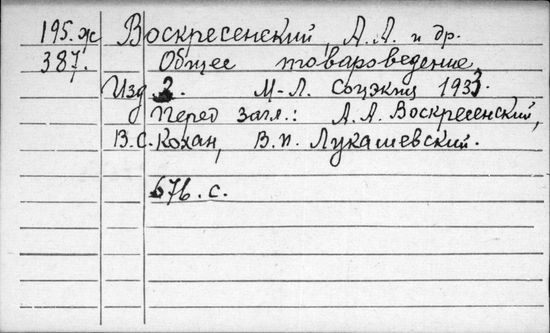 195.ж Воскресенский, А.А. и др.
387. Общее товароведение
Изд 3. М-Л. Соцэкгиз 1933
Перед загл.: А.А. Воскресенский,
В.С. Кохан, В.П. Лукашевский.
676. с.